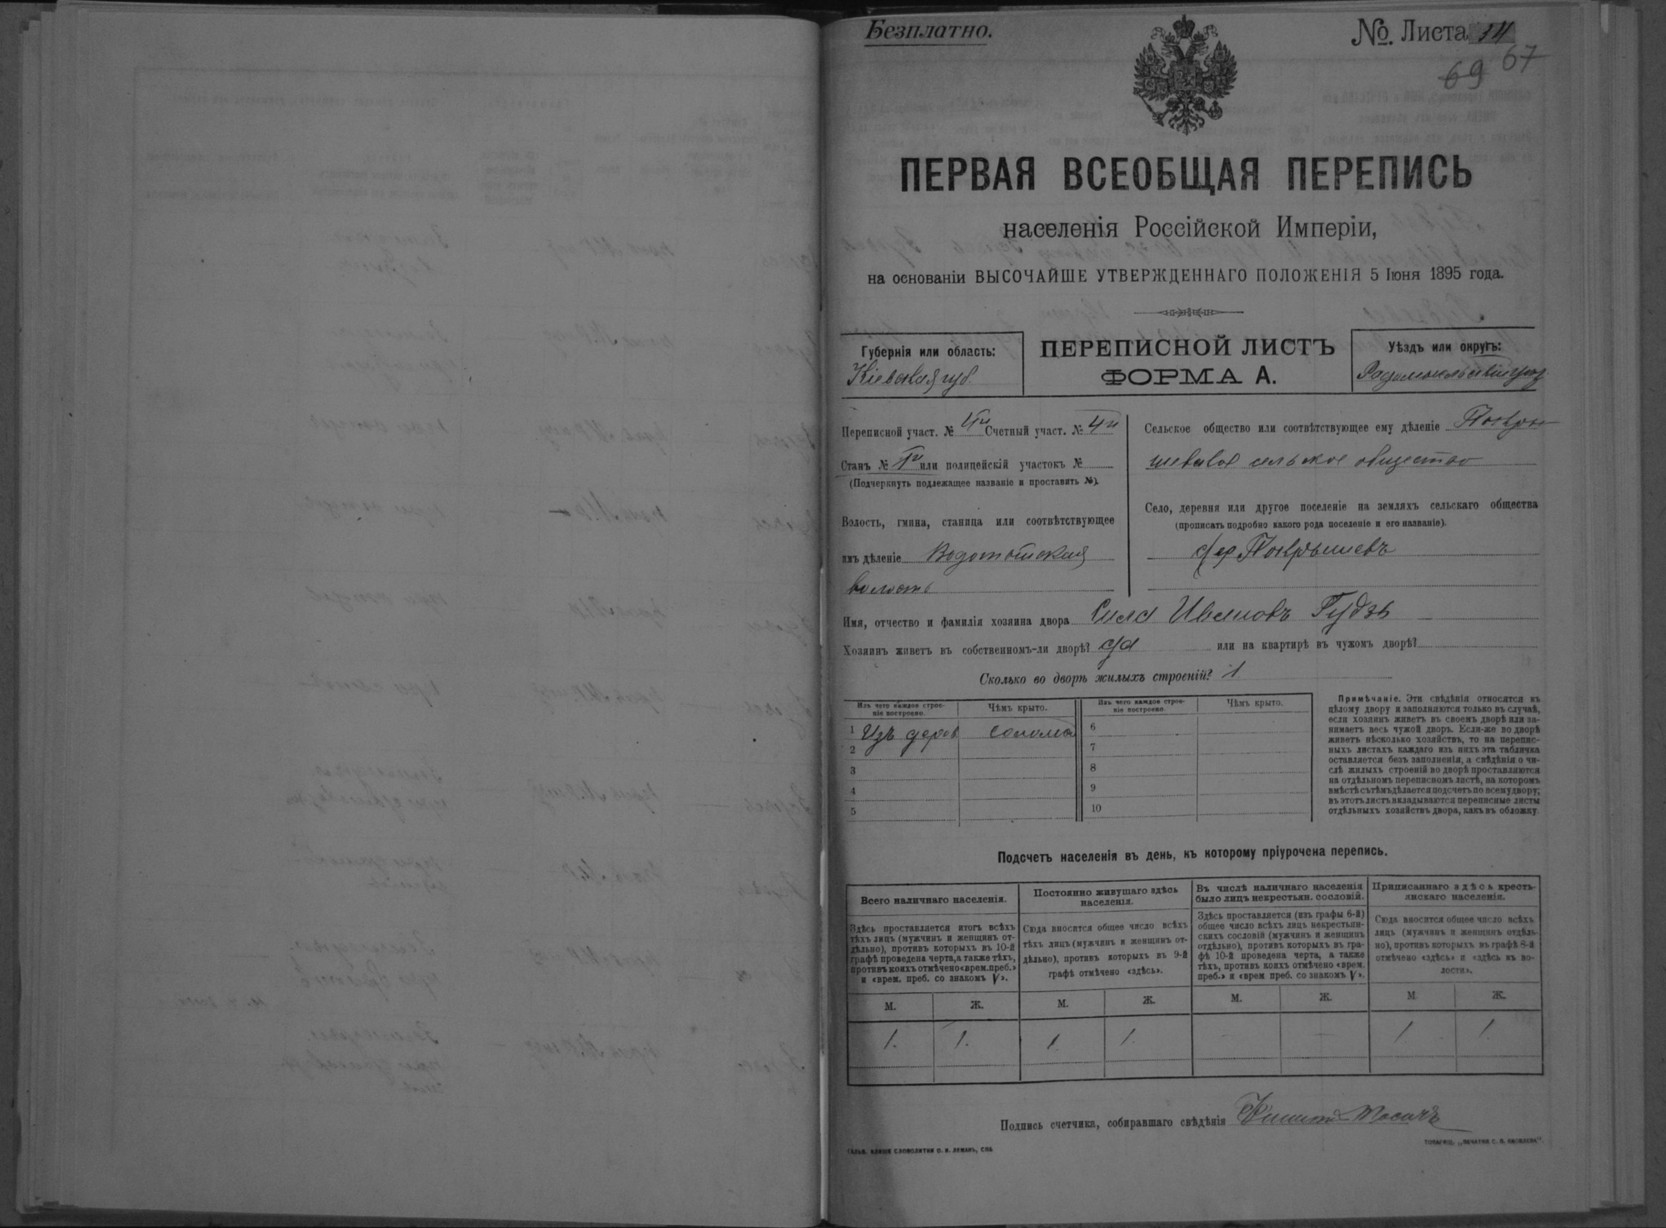 Безплатно.
№ Листа
69 67
ПЕРВАЯ ВСЕОБЩАЯ ПЕРЕПИСЬ
населенія Россійской Имперіи,
на основаніи ВЫСОЧАЙШЕ УТВЕРЖДЕННАГО ПОЛОЖЕНІЯ 5 Іюня 1895 года.
Губернія или область:
Кіевская губ
ПЕРЕПИСНОЙ ЛИСТЪ
ФОРМА А.
Уѣздъ или округъ:
Переписной участ. № 4й Счетный участ. № 4й
Станъ № или полицейскій участокъ №
(Подчеркнуть подлежащее названіе и проставить №).
Волость, гмина, станица или соотвѣтствующее
имъ дѣленіе
волость
Сельское общество или соотвѣтствующее ему дѣленіе
сельское общество
Село, деревня или другое поселеніе на земляхъ сельскаго общества
(прописать подробно какого рода поселеніе и его названіе).
Имя, отчество и фамилія хозяина двора Сила Ивановъ Гудзь
Хозяинъ живетъ въ собственномъ-ли дворѣ? да или на квартирѣ въ чужомъ дворѣ?
Сколько во дворѣ жилыхъ строеній? 1
Изъ чего каждое строе-
ніе построено.
Чѣмъ крыто.
Изъ чего каждое строе-
ніе построено.
Чѣмъ крыто.
1 Изъ дерев солома 6
2 7
3 8
4 9
5 10
Примѣчаніе. Эти свѣдѣнія относятся къ
цѣлому двору и заполняются только въ случаѣ,
если хозяинъ живетъ въ своемъ дворѣ или за-
нимаетъ весь чужой дворъ. Если-же во дворѣ
живетъ нѣсколько хозяйствъ, то на перепис-
ныхъ листахъ каждаго изъ нихъ эта табличка
оставляется безъ заполненія, а свѣдѣнія о чи-
слѣ жилыхъ строеній во дворѣ проставляются
на отдѣльномъ переписномъ листѣ, на которомъ
вмѣстѣ съ тѣмъ дѣлается подсчетъ по всему двору;
въ этотъ листъ вкладываются переписные листы
отдѣльныхъ хозяйствъ двора, какъ въ обложку.
Подсчетъ населенія въ день, къ которому пріурочена перепись.
Всего наличнаго населенія.
Здѣсь проставляется итогъ всѣхъ
тѣхъ лицъ (мужчинъ и женщинъ от-
дѣльно), противъ которыхъ въ 10-й
графѣ проведена черта, а также тѣхъ,
противъ коихъ отмѣчено «врем. преб.»
и «врем. преб. со знакомъ V».
Постоянно живущаго здѣсь
населенія.
Сюда вносится общее число всѣхъ
тѣхъ лицъ (мужчинъ и женщинъ от-
дѣльно), противъ которыхъ въ 9-й
графѣ отмѣчено «здѣсь».
Въ числѣ наличнаго населенія
было лицъ некрестьян. сословій.
Здѣсь проставляется (изъ графы 6-й)
общее число всѣхъ лицъ некрестьян-
скихъ сословій (мужчинъ и женщинъ
отдѣльно), противъ которыхъ въ гра-
фѣ 10-й проведена черта, а также
тѣхъ, противъ коихъ отмѣчено «врем.
преб.» и «врем преб. со знакомъ V».
Приписаннаго здѣсь кресть-
янскаго населенія.
Сюда вносится общее число всѣхъ
лицъ (мужчинъ и женщинъ отдѣль-
но), противъ которыхъ въ графѣ 8-й
отмѣчено «здѣсь» и «здѣсь въ во-
лости».
М. Ж. М. Ж. М. Ж. М. Ж.
1. 1. 1 1 - - 1 1
Подпись счетчика, собиравшаго свѣдѣнія